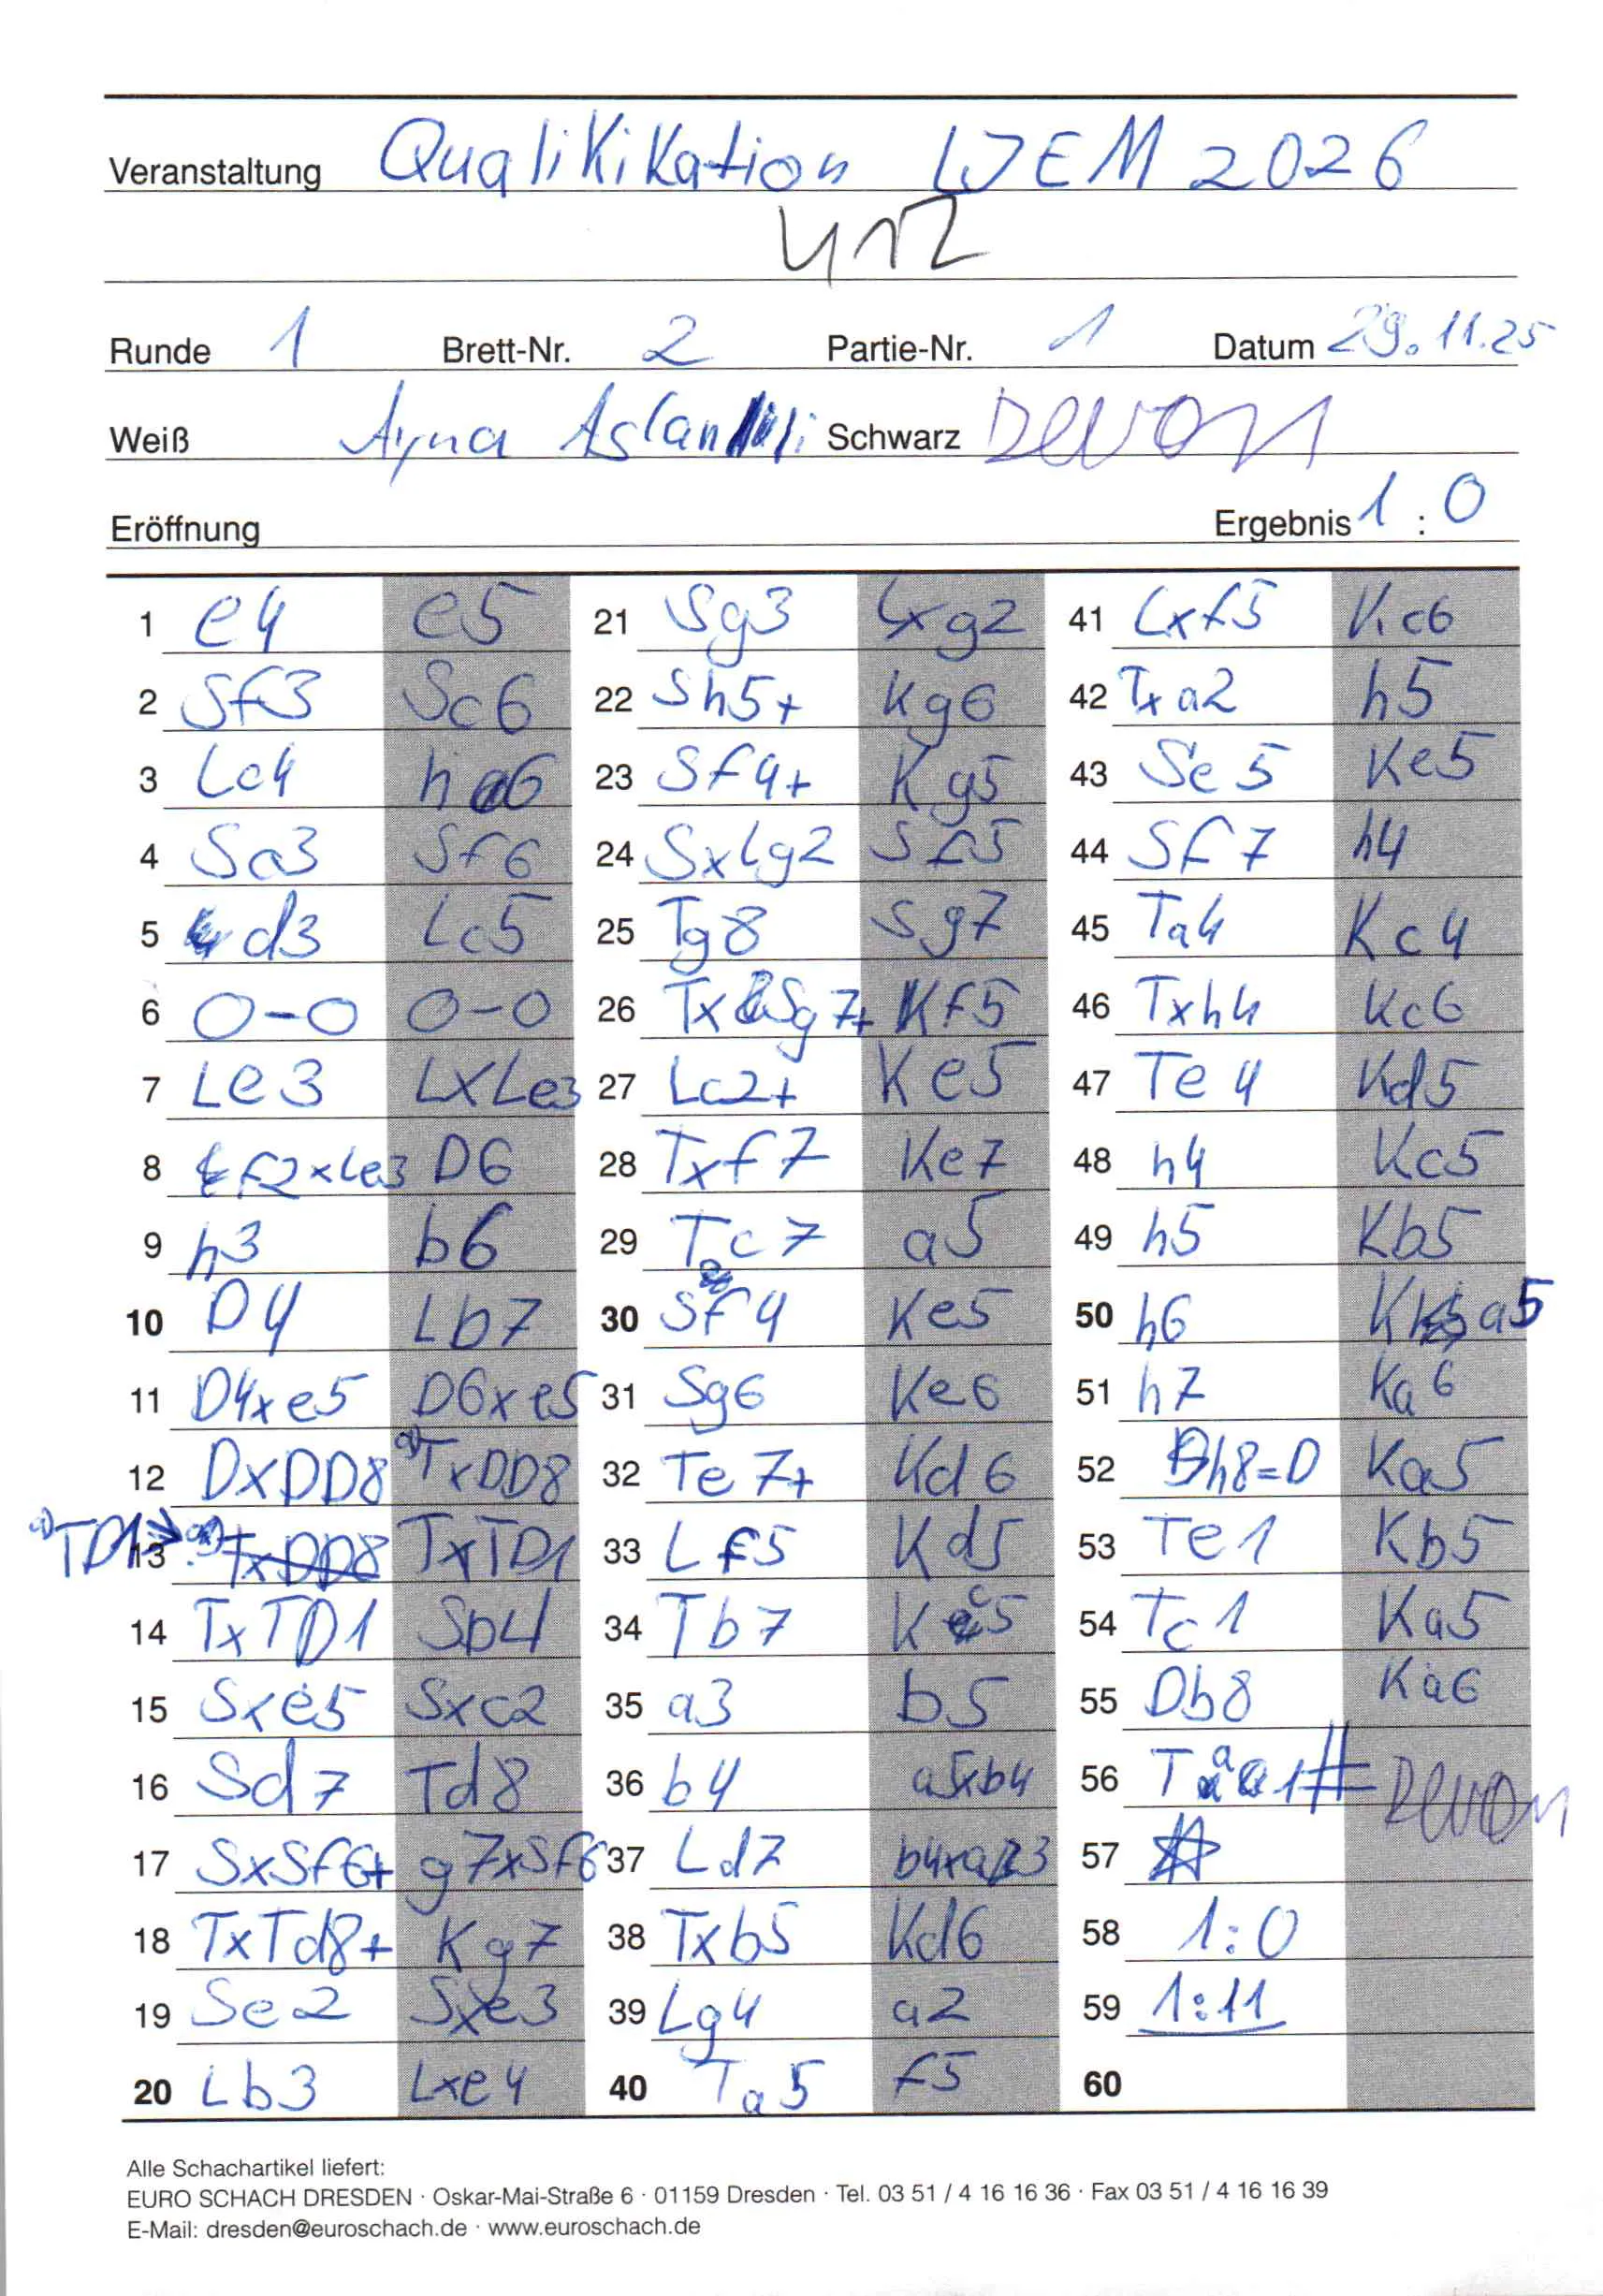 Veranstaltung Qualikikation WEM 2026
U12
Runde 1 Brett-Nr. 2 Partie-Nr. 1 Datum 29.11.25
Weiß Ayna Aslanli Schwarz Devon
Eröffnung Ergebnis 1 : 0
1 e4 e5 21 Sg3 Lxg2 41 Lxf5 Kc6
2 Sf3 Sc6 22 Sh5+ Kg6 42 Txa2 h5
3 Lc4 h6 23 Sf4+ Kg5 43 Se5 Ke5
4 Sa3 Sf6 24 SxLg2 Sf5 44 Sf7 h4
5 d3 Lc5 25 Tg8 Sg7 45 Ta4 Kc4
6 0-0 0-0 26 TxSg7+ Kf5 46 Txh4 Kc6
7 Le3 LxLe3 27 Lc2+ Ke5 47 Te4 Kd5
8 f2xLe3 D6 28 Txf7 Ke7 48 h4 Kc5
9 h3 b6 29 Tc7 a5 49 h5 Kb5
10 D4 Lb7 30 Sf4 Ke5 50 h6 Ka5
11 D4xe5 D6xe5 31 Sg6 Ke6 51 h7 Ka6
12 DxDD8 TxDD8 32 Te7+ Kd6 52 h8=D Ka5
TD1 13 TxDD8 TxTD1 33 Lf5 Kd5 53 Te1 Kb5
14 TxTD1 Sb4 34 Tb7 Kc5 54 Tc1 Ka5
15 Sxe5 Sxc2 35 a3 b5 55 Db8 Ka6
16 Sd7 Td8 36 b4 a5xb4 56 Ta1# Devon
17 SxSf6+ g7xSf6 37 Ld7 b4xa3 57
18 TxTd8+ Kg7 38 Txb5 Kd6 58 1:0
19 Se2 Sxe3 39 Lg4 a2 59 1:11
20 Lb3 Lxe4 40 Ta5 f5 60
Alle Schachartikel liefert:
EURO SCHACH DRESDEN · Oskar-Mai-Straße 6 · 01159 Dresden · Tel. 03 51 / 4 16 16 36 · Fax 03 51 / 4 16 16 39
E-Mail: dresden@euroschach.de · www.euroschach.de